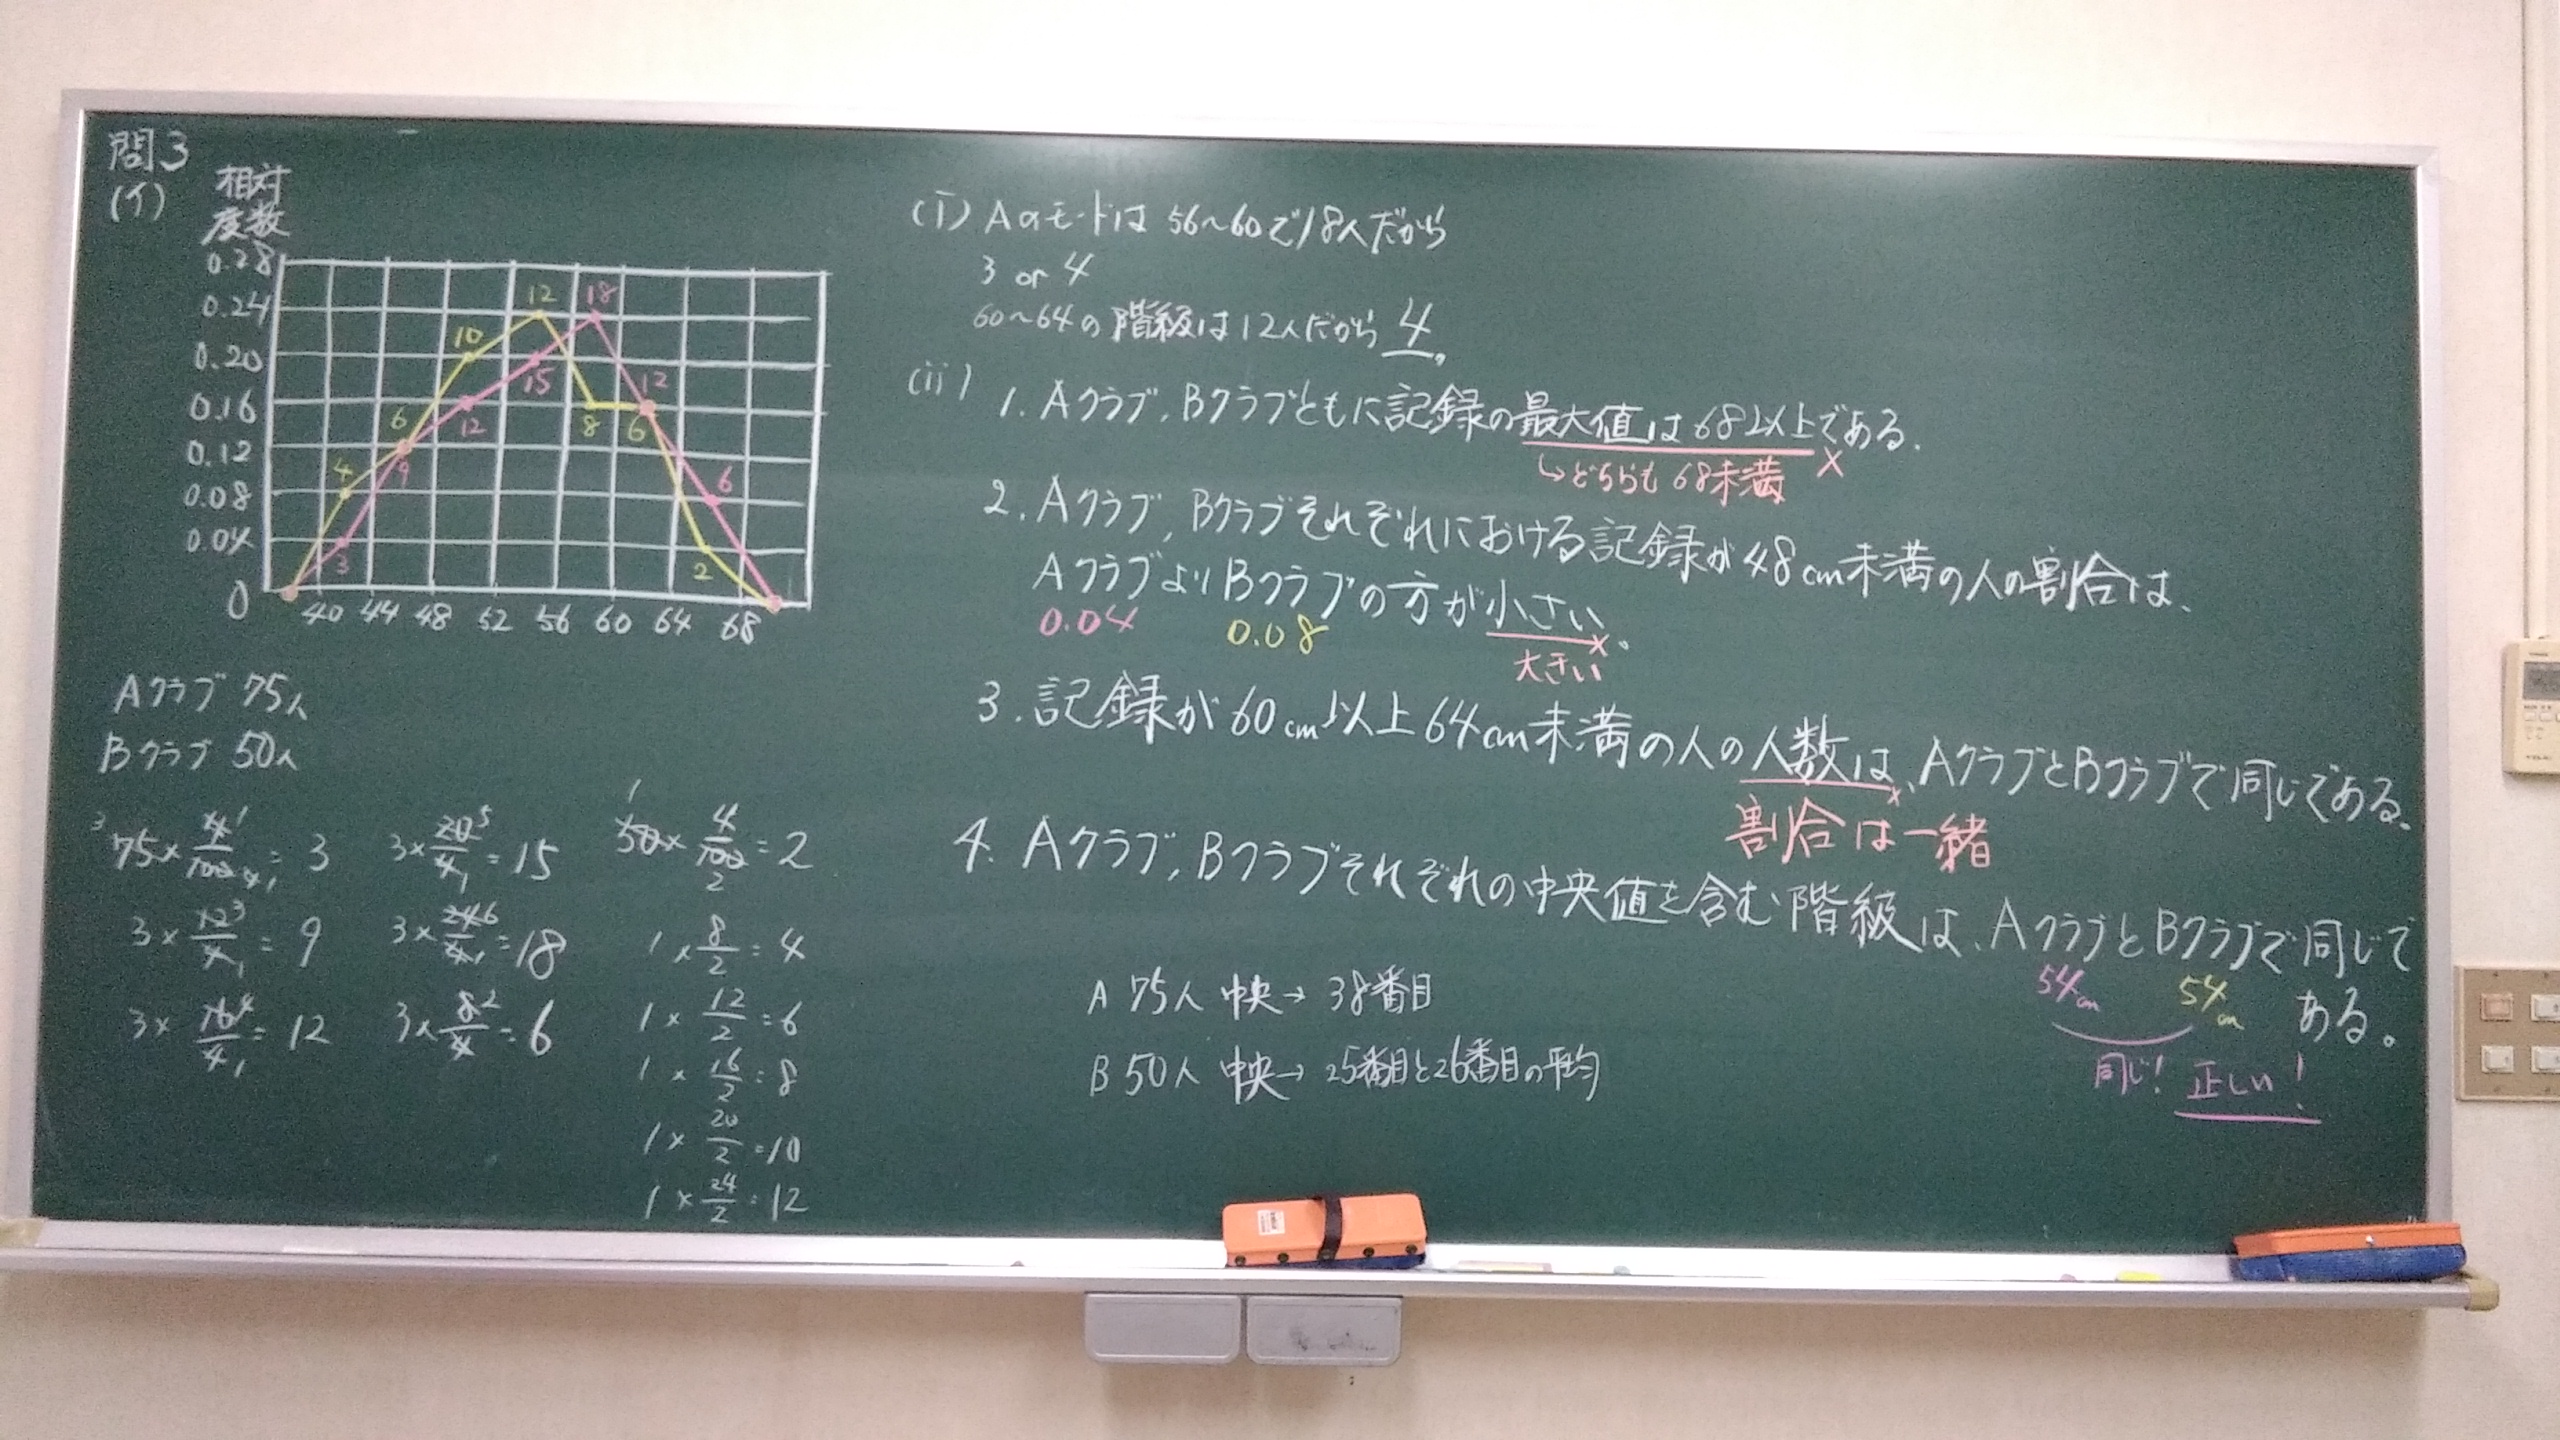 問3
(イ)
相対
度数
0.28
0.24
0.20
0.16
0.12
0.08
0.04
0
40 44 48 52 56 60 64 68
12 18
10
15
12
6
12
8 6
4
9
6
3
2
Aクラブ 75人
Bクラブ 50人
3 75 × 4 1/100 4 1 = 3
3 × 12 3/4 1 = 9
3 × 16 4/4 1 = 12
3 × 20 5/4 1 = 15
3 × 24 6/4 1 = 18
3 × 8 2/4 = 6
1 50 × 4/100 2 = 2
1 × 8/2 = 4
1 × 12/2 = 6
1 × 16/2 = 8
1 × 20/2 = 10
1 × 24/2 = 12
(i) Aのモードは 56〜60で18人だから
3 or 4
60〜64の階級は12人だから 4。
(ii)
1. Aクラブ, Bクラブともに記録の最大値は68以上である.
↳どちらも 68未満 ×
2. Aクラブ, Bクラブそれぞれにおける記録が48cm未満の人の割合は、
AクラブよりBクラブの方が小さい。
0.04 0.08 ×
大きい
3. 記録が60cm以上64cm未満の人の人数は、AクラブとBクラブで同じである。
×
割合は一緒
4. Aクラブ, Bクラブそれぞれの中央値を含む階級は、AクラブとBクラブで同じで
ある。
54cm 54cm
同じ! 正しい!
A 75人 中央→ 38番目
B 50人 中央→ 25番目と26番目の平均